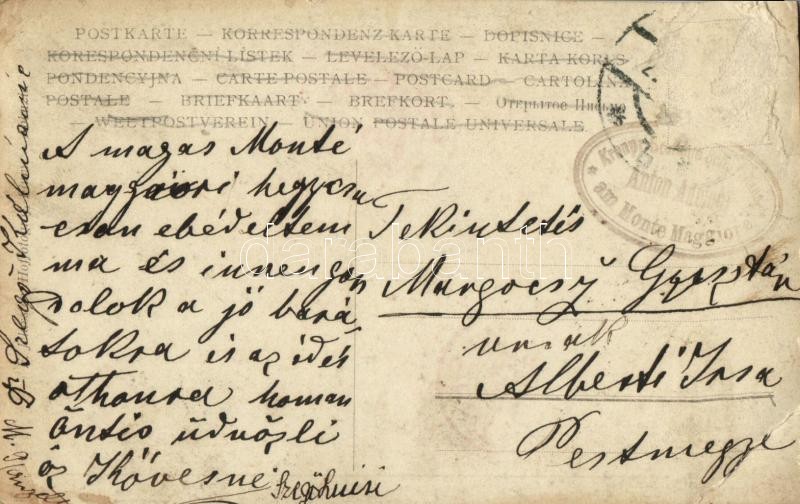 POSTKARTE — KORRESPONDENZ-KARTE — DOPISNICE —
KORESPONDENČNÍ LÍSTEK — LEVELEZŐ-LAP — KARTA KORES-
PONDENCYJNA — CARTE POSTALE — POSTCARD — CARTOLINA
POSTALE — BRIEFKAART — BREFKORT — Открытое Письмо
— WELTPOSTVEREIN — UNION POSTALE UNIVERSALE —
Anton
am Monte Maggiore
A magas Monté
maggiori hegycsu
cson ebédeltem
ma és innen gon
dolok a jó bará
tokra és az édes
otthonra
üdvözli
és Kövesne
Tekintetés
Margocsy Gusztáv
urnak
Alberti Irsa
Pestmegye
Dr Szegő Kálmánné
darabanth